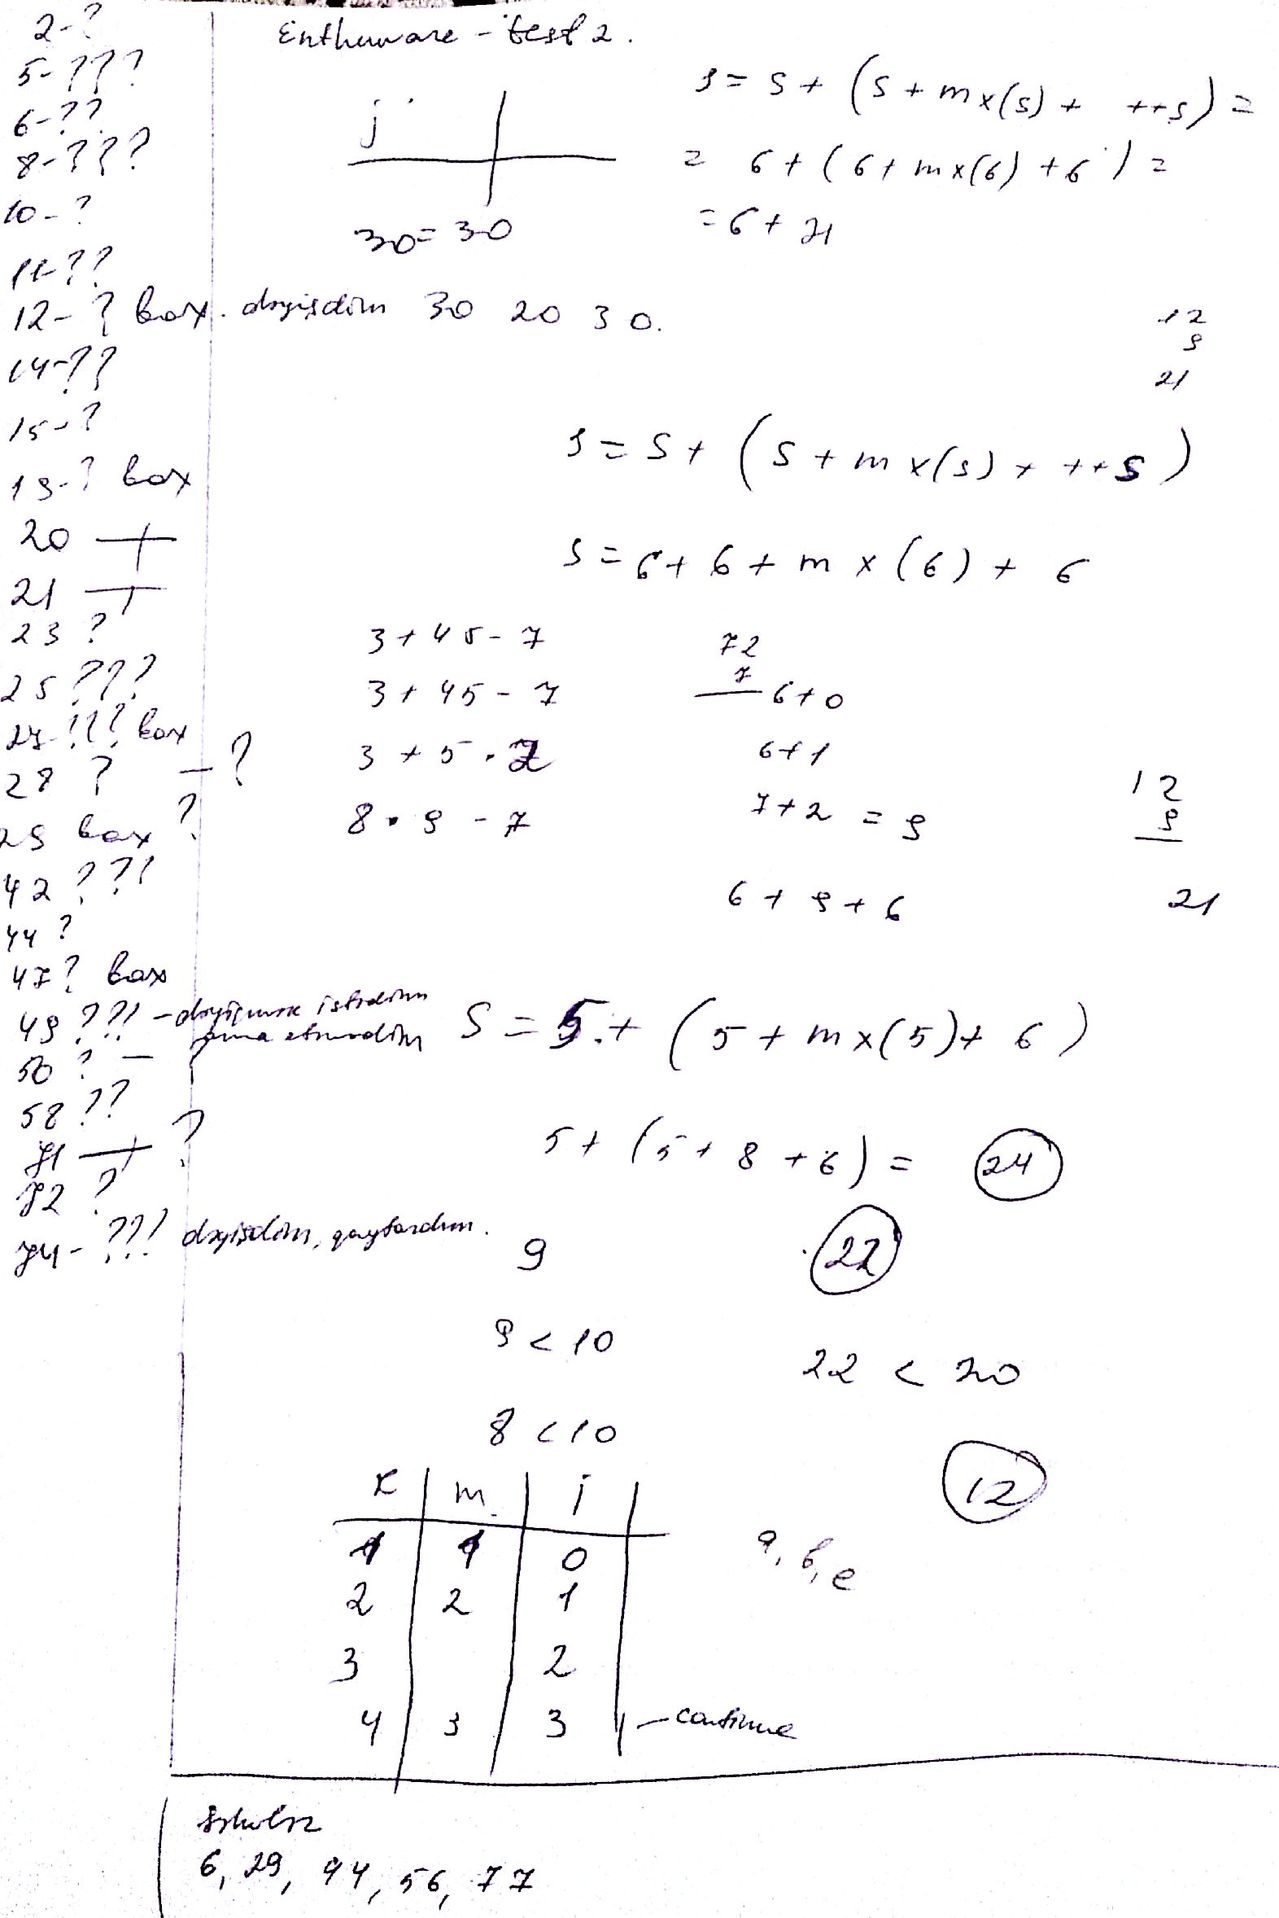 Enthuware - test 2.
2-?
5-???
6-??
8-???
10-?
11-??
12-? bax. dəyişdim 30 20 30.
14-??
15-?
19-? bax
20 -+
21 -+
23 ?
25 ???
27-!!? bax
28 ? - ?
29 bax ?
42 ??!
44 ?
47? bax
49 ??! - dəyişmək istədim
amma etmədim
50 ? -
58 ??
71 -+ ?
72 ?
74- ??! dəyişdim, qaytardım.
j
30=30
s = s + (s + mx(s) + ++s) =
= 6 + (6 + mx(6) + 6) =
= 6 + 21
12
9
21
s = s + (s + mx(s) + ++s)
s = 6 + 6 + mx(6) + 6
3 + 45 - 7
3 + 45 - 7
3 + 5 . 7
8 . 9 - 7
72
7
6+0
6+1
7+2 = 9
6 + 9 + 6
12
9
21
s = 5 + (5 + mx(5) + 6)
5 + (5 + 8 + 6) = 24
9
22
9 < 10
22 < 20
8 < 10
12
k m j
1 1 0
2 2 1
3 2
4 3 3 - continue
a, b, e
6, 29, 44, 56, 77